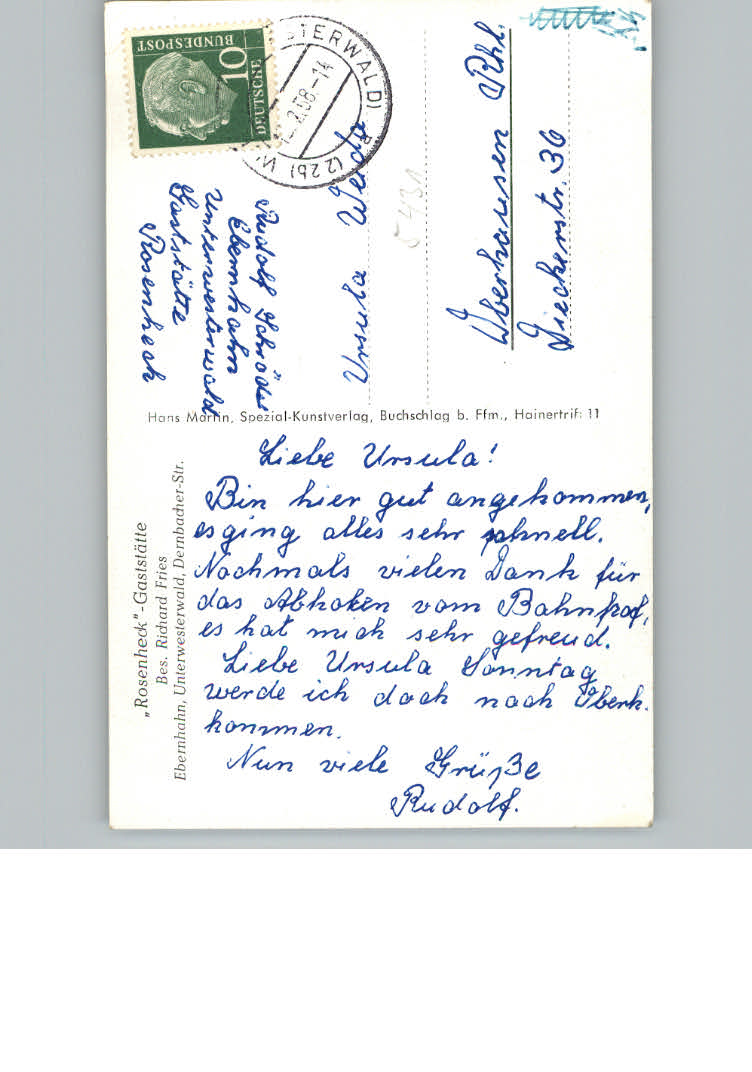 DEUTSCHE
BUNDESPOST
10
STERWALD)
2.58.-14
(22b) W
Rudolf Schröder
Ebernhahn
Unterwesterwald
Gaststätte
Rosenheck
Ursula
Oberhausen Rhl.
Dieckerstr. 36
5431
Hans Martin, Spezial-Kunstverlag, Buchschlag b. Ffm., Hainertrift 11
„Rosenheck"-Gaststätte
Bes. Richard Fries
Ebernhahn, Unterwesterwald, Dernbacher-Str.
Liebe Ursula!
Bin hier gut angekommen,
es ging alles sehr schnell.
Nochmals vielen Dank für
das Abholen vom Bahnhof,
es hat mich sehr gefreud.
Liebe Ursula Sonntag
werde ich doch nach Oberh.
kommen.
Nun viele Grüße
Rudolf.